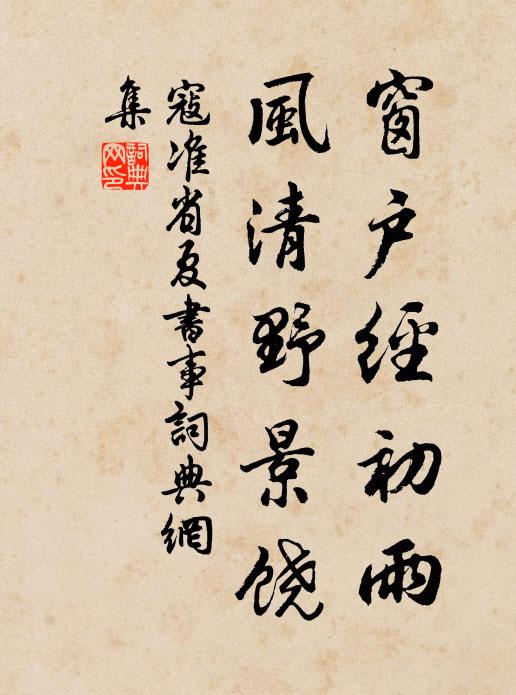 窗户經初雨
風清野景饶
寇准省夏書事詞典網
集
詞典
网印